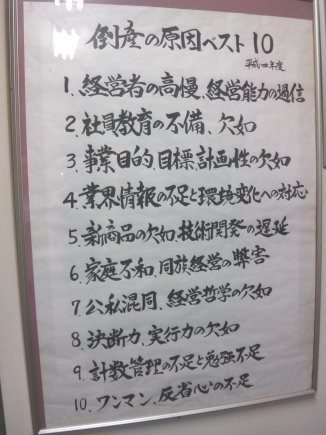 倒産の原因ベスト10
平成四年度
1、経営者の高慢、経営能力の過信
2、社員教育の不備、欠如
3、事業目的、目標、計画性の欠如
4、業界情報の不足と環境変化への対応
5、新商品の欠如、技術開発の遅延
6、家庭不和、同族経営の弊害
7、公私混同、経営哲学の欠如
8、決断力、実行力の欠如
9、計数管理の不足と勉強不足
10、ワンマン、反省心の不足